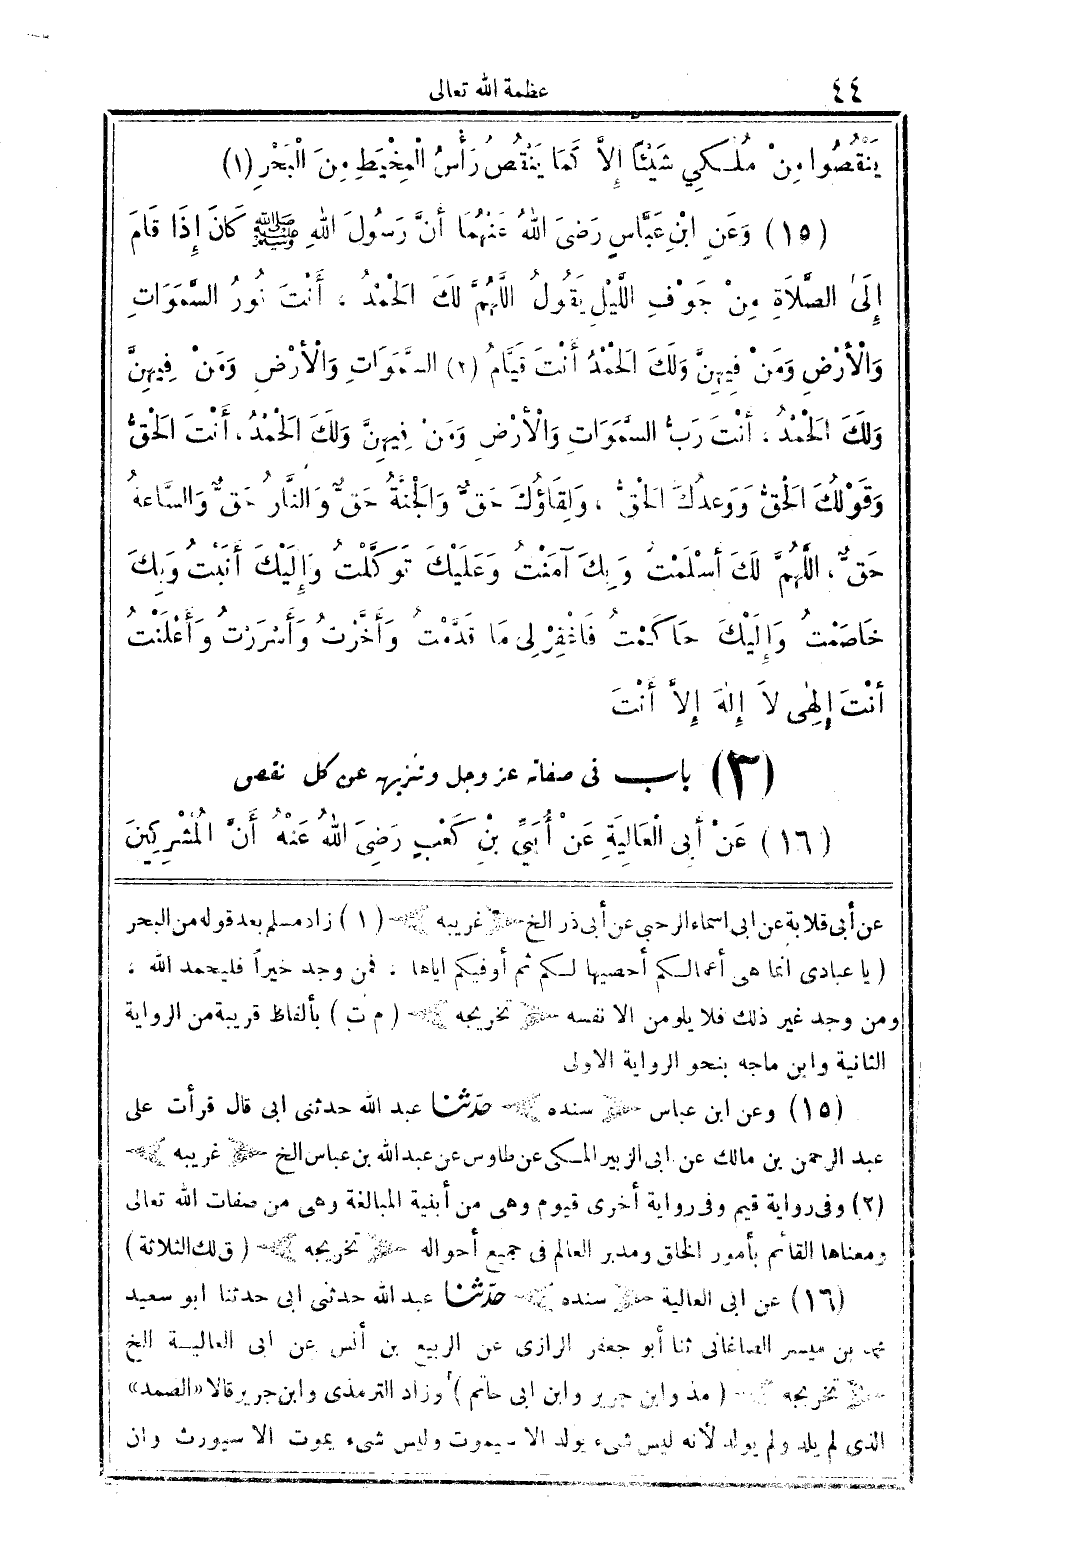 ٤٤
عظمة الله تعالى
يَنْقُصُوا مِنْ مُلْكِي شَيْئًا إِلاَّ كَمَا يَنْقُصُ رَأْسُ الْمِخْيَطِ مِنَ الْبَحْرِ (١)
(١٥) وَعَنِ ابْنِ عَبَّاسٍ رَضِىَ اللهُ عَنْهُمَا أَنَّ رَسُولَ اللهِ ﷺ كَانَ إِذَا قَامَ
إِلَى الصَّلاَةِ مِنْ جَوْفِ اللَّيْلِ يَقُولُ اللَّهُمَّ لَكَ الْحَمْدُ ، أَنْتَ نُورُ السَّمَوَاتِ
وَالْأَرْضِ وَمَنْ فِيهِنَّ وَلَكَ الْحَمْدُ أَنْتَ قَيَّامُ (٢) السَّمَوَاتِ وَالْأَرْضِ وَمَنْ فِيهِنَّ
وَلَكَ الْحَمْدُ ، أَنْتَ رَبُّ السَّمَوَاتِ وَالْأَرْضِ وَمَنْ فِيهِنَّ وَلَكَ الْحَمْدُ ، أَنْتَ الْحَقُّ
وَقَوْلُكَ الْحَقُّ وَوَعْدُكَ الْحَقُّ ، وَلِقَاؤُكَ حَقٌّ وَالْجَنَّةُ حَقٌّ وَالنَّارُ حَقٌّ وَالسَّاعَةُ
حَقٌّ ، اللَّهُمَّ لَكَ أَسْلَمْتُ وَبِكَ آمَنْتُ وَعَلَيْكَ تَوَكَّلْتُ وَإِلَيْكَ أَنَبْتُ وَبِكَ
خَاصَمْتُ وَإِلَيْكَ حَاكَمْتُ فَاغْفِرْ لِى مَا قَدَّمْتُ وَأَخَّرْتُ وَأَسْرَرْتُ وَأَعْلَنْتُ
أَنْتَ إِلٰهِى لاَ إِلٰهَ إِلاَّ أَنْتَ
(٣) باب فى صفاته عز وجل وتنزيهه عن كل نقص
(١٦) عَنْ أَبِى الْعَالِيَةِ عَنْ أُبَيِّ بْنِ كَعْبٍ رَضِىَ اللهُ عَنْهُ أَنَّ الْمُشْرِكِينَ
عن أبى قلابة عن ابى اسماء الرحبى عن أبى ذر الخ غريبه (١) زاد مسلم بعد قوله من البحر
(يا عبادى انما هى أعمالكم أحصيها لكم ثم أوفيكم اياها ، فمن وجد خيراً فليحمد الله ،
ومن وجد غير ذلك فلا يلومن الا نفسه تخريجه (م ت) بألفاظ قريبة من الرواية
الثانية وابن ماجه بنحو الرواية الاولى
(١٥) وعن ابن عباس سنده حدّثنا عبد الله حدثنى ابى قال قرأت على
عبد الرحمن بن مالك عن ابى الزبير المكى عن طاوس عن عبد الله بن عباس الخ غريبه
(٢) وفى رواية قيم وفى رواية أخرى قيوم وهى من أبنية المبالغة وهى من صفات الله تعالى
ومعناها القائم بأمور الخلق ومدبر العالم فى جميع أحواله تخريجه (ق لك الثلاثة)
(١٦) عن ابى العالية سنده حدّثنا عبد الله حدثنى ابى حدثنا ابو سعيد
محمد بن ميسر الصاغانى ثنا أبو جعفر الرازى عن الربيع بن أنس عن ابى العالية الخ
تخريجه (مذ وابن جرير وابن ابى حاتم) وزاد الترمذى وابن جرير قالا «الصمد»
الذى لم يلد ولم يولد لأنه ليس شىء يولد الا سيموت وليس شىء يموت الا سيورث وان